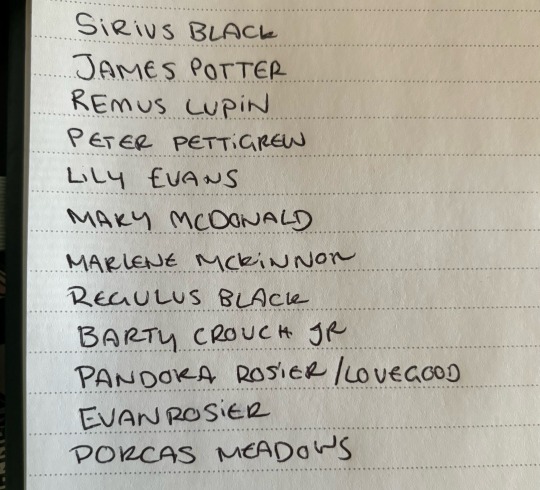 SIRIUS BLACK
JAMES POTTER
REMUS LUPIN
PETER PETTIGREW
LILY EVANS
MARY MCDONALD
MARLENE MCKINNON
REGULUS BLACK
BARTY CROUCH JR
PANDORA ROSIER/LOVEGOOD
EVAN ROSIER
DORCAS MEADOWS